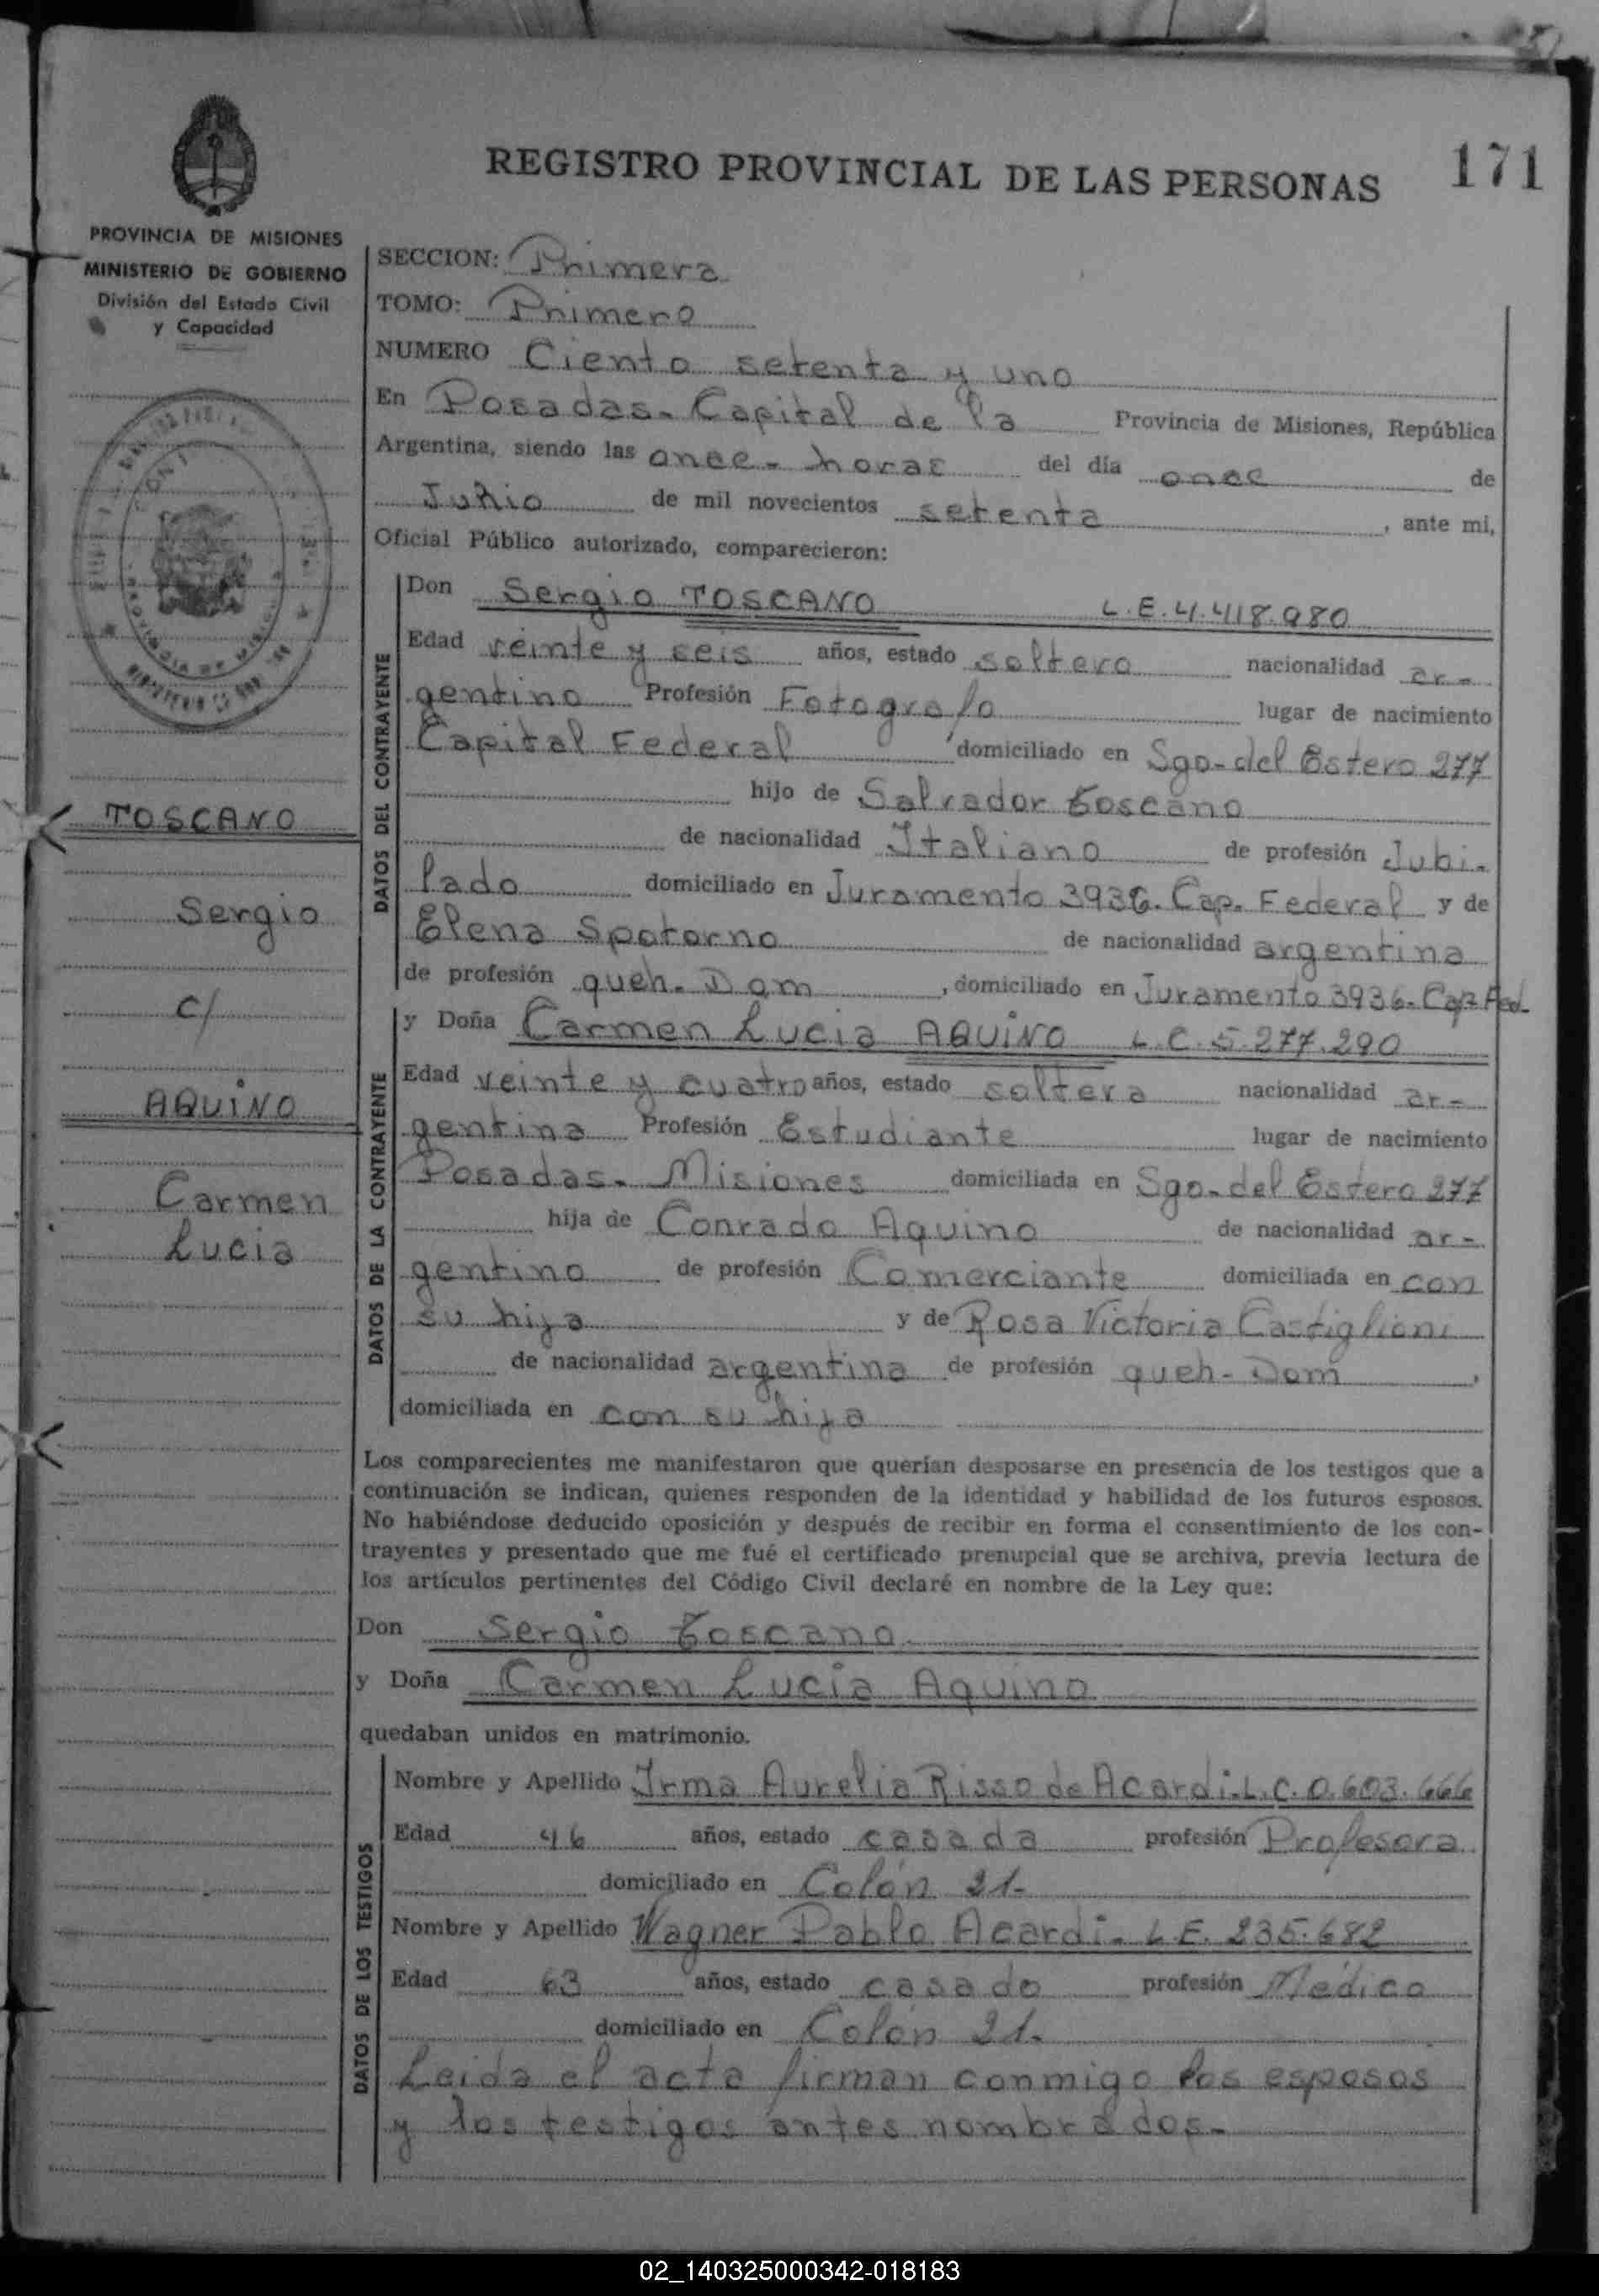 REGISTRO PROVINCIAL DE LAS PERSONAS
171
PROVINCIA DE MISIONES
MINISTERIO DE GOBIERNO
División del Estado Civil
y Capacidad
SECCION: Primera
TOMO: Primero
NUMERO Ciento setenta y uno
En Posadas. Capital de la Provincia de Misiones, República
Argentina, siendo las once - horas del día once de
Junio de mil novecientos setenta, ante mi,
Oficial Público autorizado, comparecieron:
TOSCANO
Sergio
c/
AQUINO
Carmen
Lucia
DATOS DEL CONTRAYENTE
Don Sergio TOSCANO L.E. 4.418.980
Edad veinte y seis años, estado soltero nacionalidad ar-
gentino Profesión Fotografo lugar de nacimiento
Capital Federal domiciliado en Sgo. del Estero 277
hijo de Salvador Toscano
de nacionalidad Italiano de profesión Jubi-
lado domiciliado en Juramento 3936. Cap. Federal y de
Elena Spotorno de nacionalidad argentina
de profesión queh. Dom, domiciliado en Juramento 3936. Cap. Fed.
DATOS DE LA CONTRAYENTE
y Doña Carmen Lucia AQUINO L.C. 5.277.290
Edad veinte y cuatro años, estado soltera nacionalidad ar-
gentina Profesión Estudiante lugar de nacimiento
Posadas. Misiones domiciliada en Sgo. del Estero 277
hija de Conrado Aquino de nacionalidad ar-
gentino de profesión Comerciante domiciliada en con
su hija y de Rosa Victoria Castiglioni
de nacionalidad argentina de profesión queh. Dom,
domiciliada en con su hija
Los comparecientes me manifestaron que querían desposarse en presencia de los testigos que a
continuación se indican, quienes responden de la identidad y habilidad de los futuros esposos.
No habiéndose deducido oposición y después de recibir en forma el consentimiento de los con-
trayentes y presentado que me fué el certificado prenupcial que se archiva, previa lectura de
los artículos pertinentes del Código Civil declaré en nombre de la Ley que:
Don Sergio Toscano
y Doña Carmen Lucia Aquino
quedaban unidos en matrimonio.
DATOS DE LOS TESTIGOS
Nombre y Apellido Irma Aurelia Risso de Acardi. L.C. 0.603.666
Edad 46 años, estado casada profesión Profesora
domiciliado en Colón 21.
Nombre y Apellido Wagner Pablo Acardi. L.E. 235.682
Edad 63 años, estado casado profesión Médico
domiciliado en Colón 21.
Leida el acta firman conmigo los esposos
y los testigos antes nombrados.
02_140325000342-018183